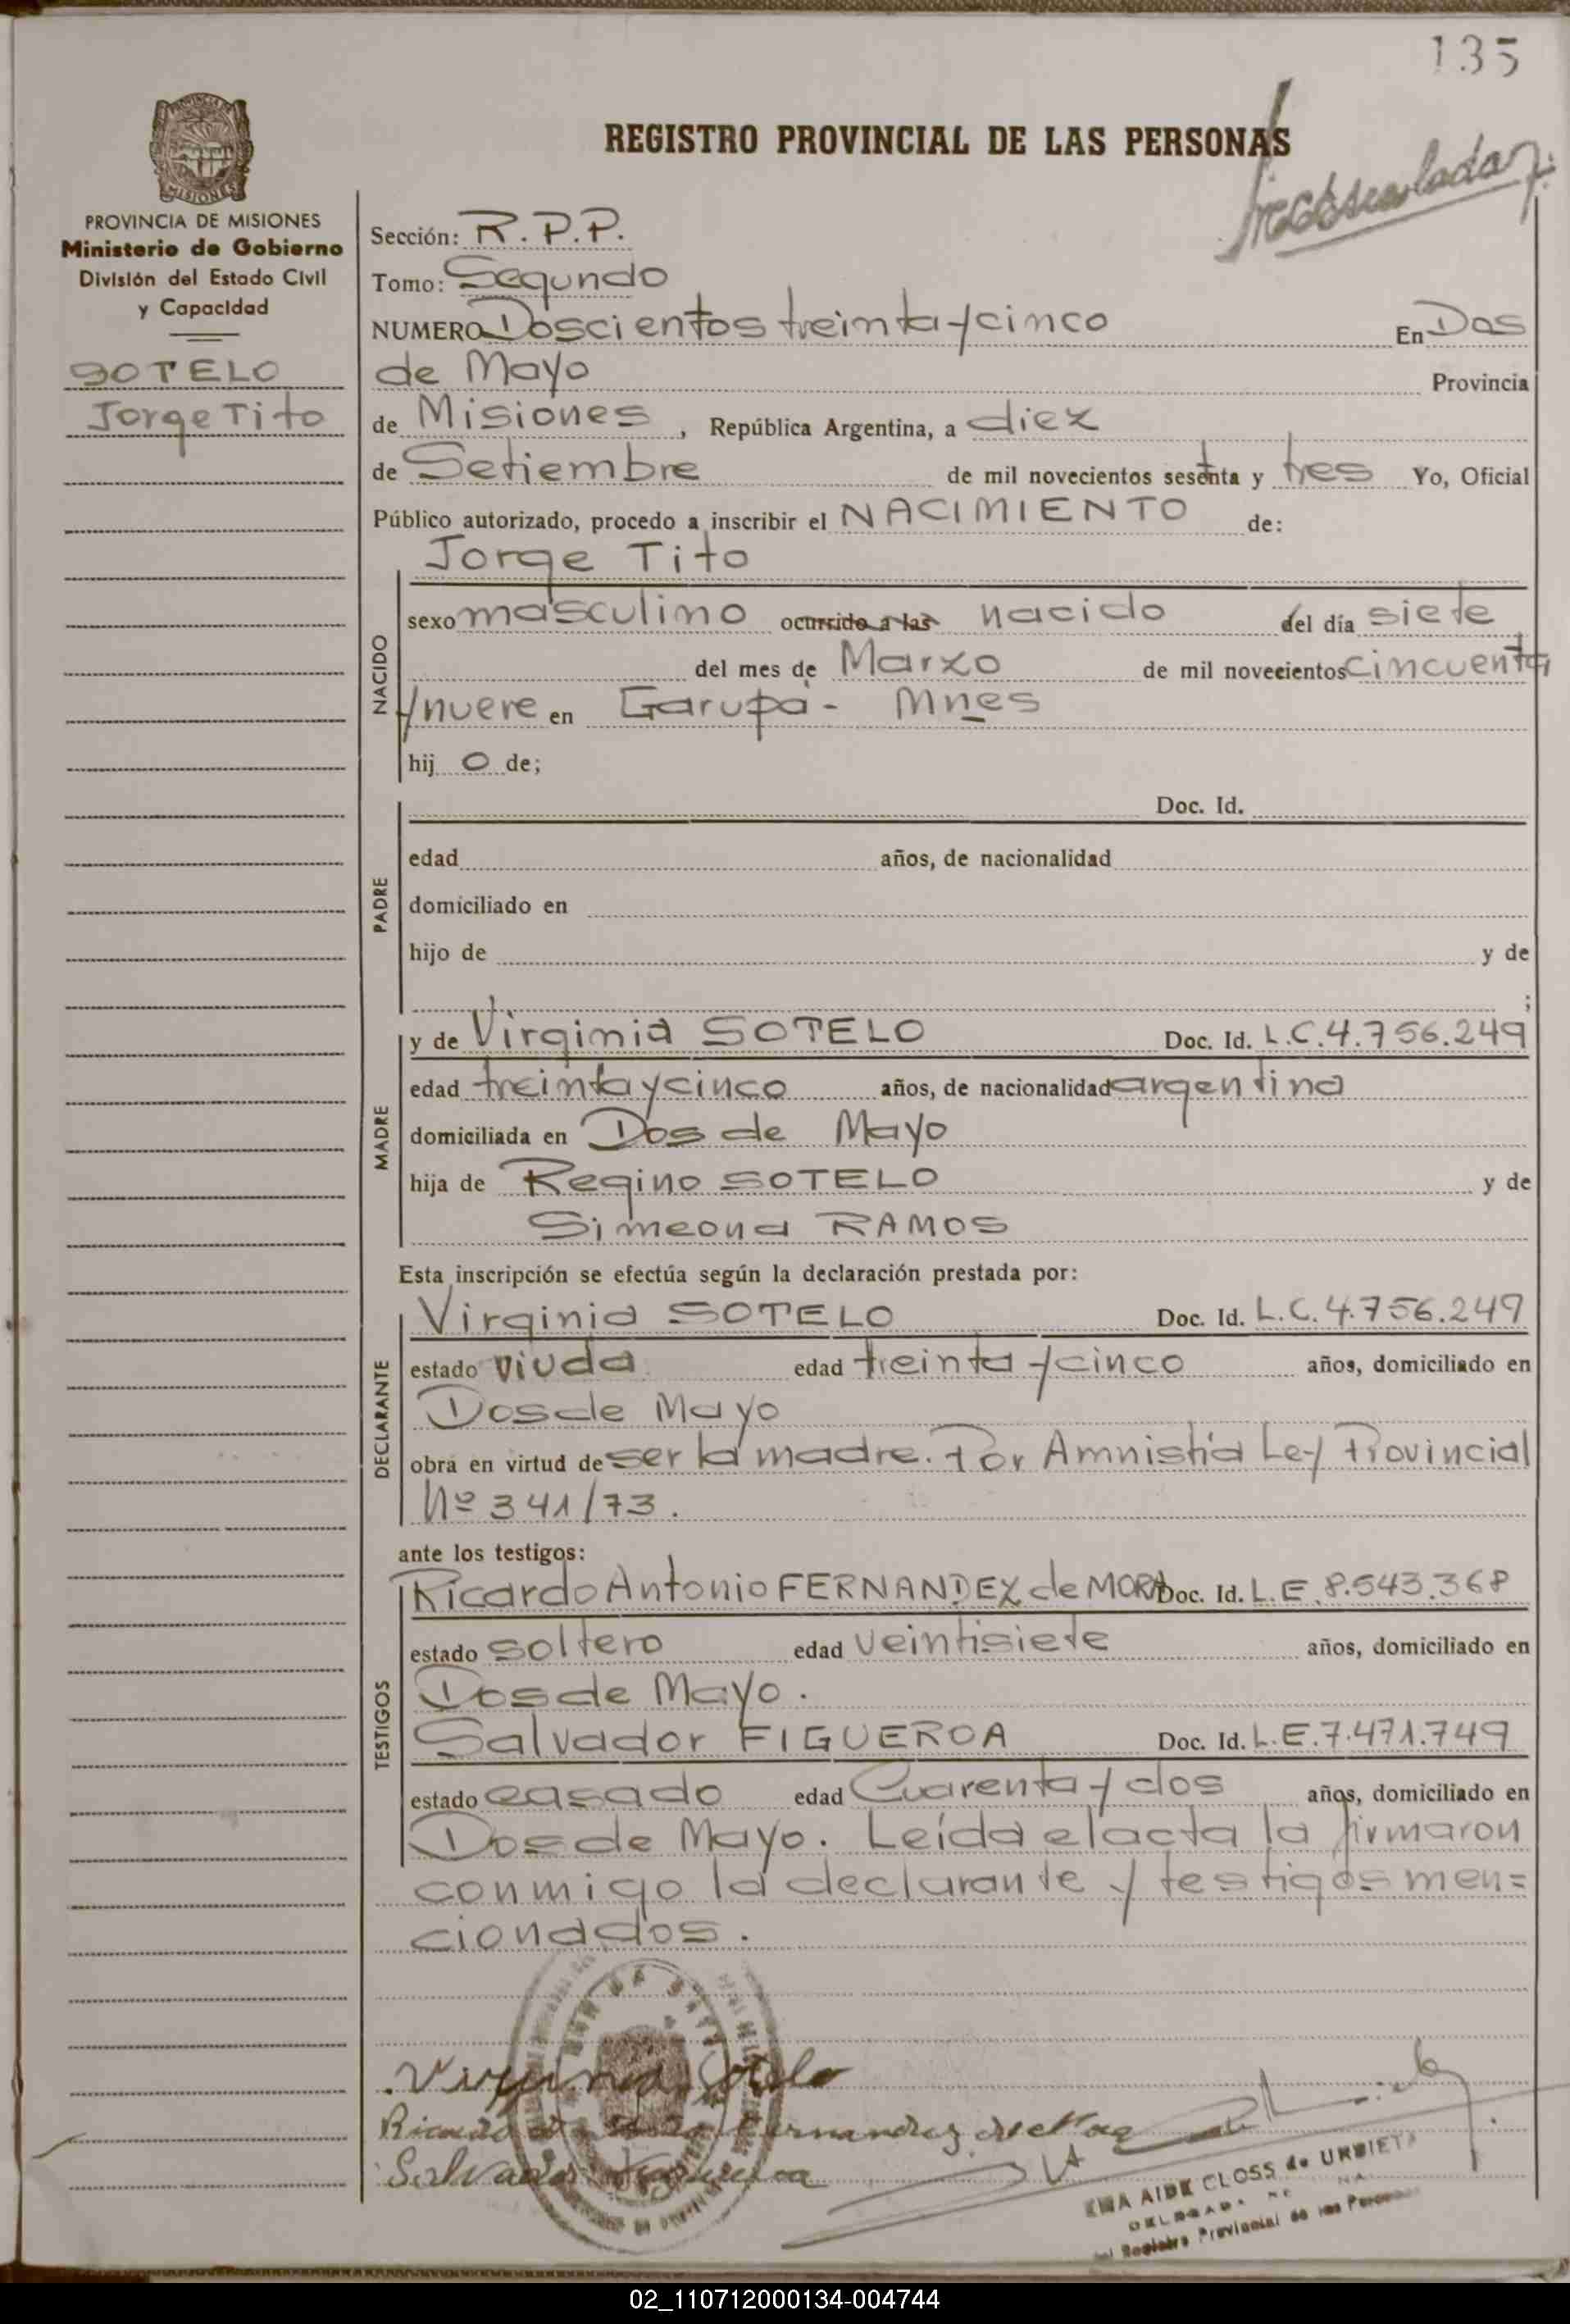 135
REGISTRO PROVINCIAL DE LAS PERSONAS
PROVINCIA DE MISIONES
Ministerio de Gobierno
División del Estado Civil
y Capacidad
SOTELO
Jorge Tito
Sección: R.P.P.
Tomo: Segundo
NUMERO Doscientos treinta y cinco En Dos
de Mayo Provincia
de Misiones, República Argentina, a diez
de Setiembre de mil novecientos sesenta y tres Yo, Oficial
Público autorizado, procedo a inscribir el NACIMIENTO de:
Jorge Tito
NACIDO
sexo masculino ocurrido a las nacido del día siete
del mes de Marzo de mil novecientos cincuenta
y nueve en Garupá - Mnes
hij o de;
PADRE
Doc. Id.
edad años, de nacionalidad
domiciliado en
hijo de y de
;
MADRE
y de Virginia SOTELO Doc. Id. L.C.4.756.249
edad treinta y cinco años, de nacionalidad argentina
domiciliada en Dos de Mayo
hija de Regino SOTELO y de
Simeona RAMOS
Esta inscripción se efectúa según la declaración prestada por:
DECLARANTE
Virginia SOTELO Doc. Id. L.C.4.756.249
estado viuda edad treinta y cinco años, domiciliado en
Dos de Mayo
obra en virtud de ser la madre. Por Amnistía Ley Provincial
Nº 341/73.
ante los testigos:
TESTIGOS
Ricardo Antonio FERNANDEZ de MORA Doc. Id. L.E.8.543.368
estado soltero edad veintisiete años, domiciliado en
Dos de Mayo.
Salvador FIGUEROA Doc. Id. L.E.7.471.749
estado casado edad Cuarenta y dos años, domiciliado en
Dos de Mayo. Leída el acta la firmaron
conmigo la declarante y testigos men=
cionados.
Virginia Sotelo
Fernandez de
Salvador Figueroa
AIDE CLOSS de URBIETA
Registro Provincial de las Personas
02_110712000134-004744